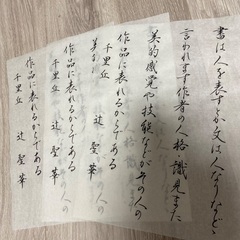 書は人を表す文は人なりなどと
言われます作者の人格識見また
美的感覚や技能などがその人の
作品に表れるからである
千里丘 辻 聖華
作品に表れるからである
千里丘 辻 聖華
作品に表れるからである
千里丘 辻 聖華